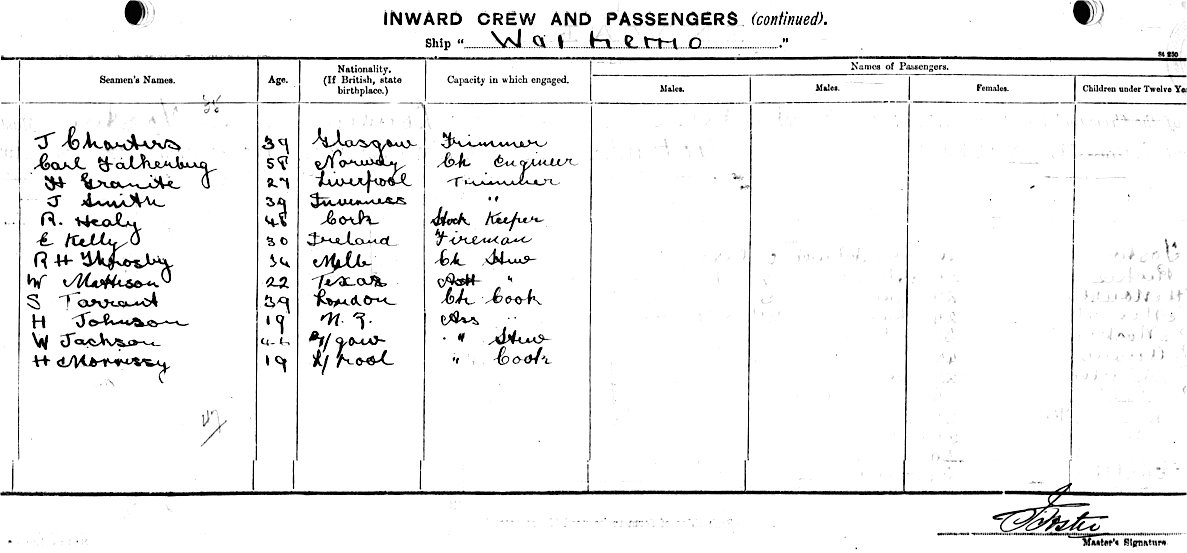 INWARD CREW AND PASSENGERS (continued).
Ship " Waihemo ."
Seamen's Names. Age. Nationality. (If British, state birthplace.) Capacity in which engaged. Names of Passengers.
Males. Males. Females. Children under Twelve Yea
J Charters 39 Glasgow Trimmer
Carl Falkenburg 58 Norway Ch Engineer
H Granite 27 Liverpool Trimmer
J Smith 39 Inverness "
R. Healy 48 Cork Stock Keeper
E Kelly 30 Ireland Fireman
R H Throsby 34 Melb Ch Stew
W Mattison 22 Texas Asst "
S Tarrant 39 London Ch Cook
H Johnson 19 N. Z. Ass "
W Jackson G/gow " Stew
H Morrissy 19 L/pool " Cook
Foster
Master's Signature